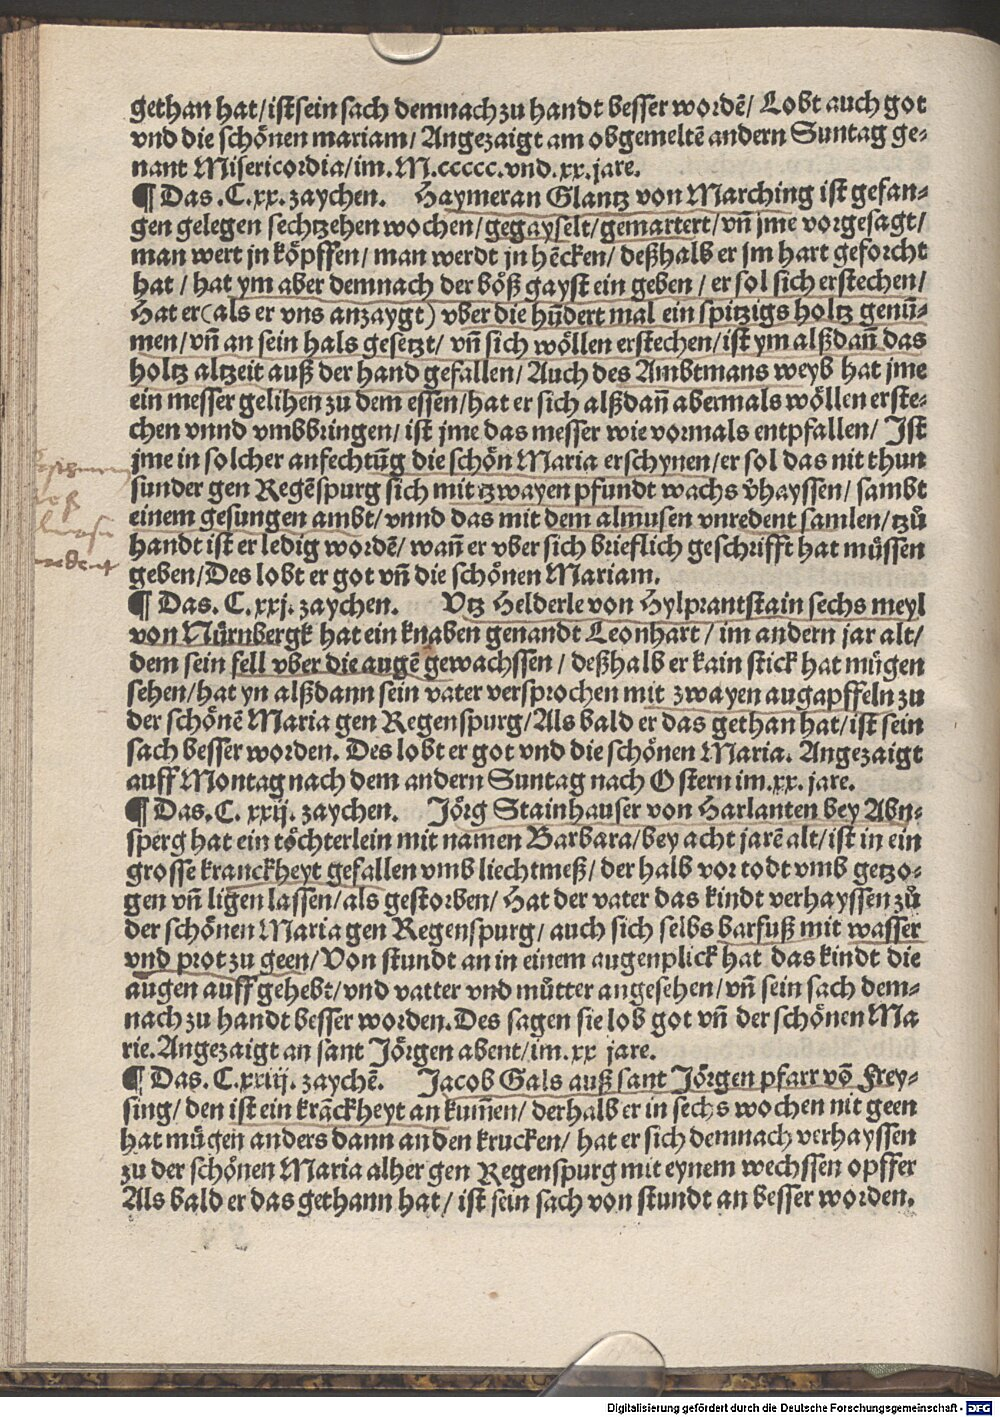 gethan hat/ ist sein sach demnach zu handt besser wordē/ Lobt auch got
vnd die schönen mariam/ Angezaigt am obgemeltē andern Suntag ge⸗
nant Misericordia/ im. M.ccccc.vnd.xx.jare.
¶ Das .C.xx. zaychen. Haymeran Glantz von Marching ist gefan⸗
gen gelegen sechtzehen wochen/ gegayselt/ gemartert/ vn̄ jme vorgesagt/
man wert jn köpffen/ man werdt jn hēcken/ deßhalb er jm hart geforcht
hat/ hat ym aber demnach der böß gayst ein geben/ er sol sich erstechen/
Hat er (als er vns anzaygt) vber die hūdert mal ein spitzigs holtz genū⸗
men/ vn̄ an sein hals gesetzt/ vn̄ sich wöllen erstechen/ ist ym alßdan̄ das
holtz altzeit auß der hand gefallen/ Auch des Ambtmans weyb hat jme
ein messer gelihen zu dem essen/ hat er sich alßdan̄ abermals wöllen erste⸗
chen vnnd vmbbringen/ ist jme das messer wie vormals entpfallen/ Ist
jme in solcher anfechtūg die schön Maria erschynen/ er sol das nit thun
sunder gen Regēspurg sich mit tzwayen pfundt wachs v̄hayssen/ sambt
einem gesungen ambt/ vnnd das mit dem almusen vnredent samlen/ tzů
handt ist er ledig wordē/ wan̄ er vber sich brieflich geschrifft hat müssen
geben/ Des lobt er got vn̄ die schönen Mariam.
¶ Das. C.xxj. zaychen. Vtz Helderle von Hylprantstain sechs meyl
von Nürnbergk hat ein knaben genandt Leonhart/ im andern jar alt/
dem sein fell vber die augē gewachssen/ deßhalb er kain stick hat mügen
sehen/ hat yn alßdann sein vater versprochen mit zwayen augapffeln zu
der schönē Maria gen Regenspurg/ Als bald er das gethan hat/ ist sein
sach besser worden. Des lobt er got vnd die schönen Maria. Angezaigt
auff Montag nach dem andern Suntag nach Ostern im.xx. jare.
¶ Das. C. xxij. zaychen. Jörg Stainhauser von Harlanten bey Abn⸗
sperg hat ein töchterlein mit namen Barbara/ bey acht jarē alt/ ist in ein
grosse kranckheyt gefallen vmb liechtmeß/ der halb vor todt vmb getzo⸗
gen vn̄ ligen lassen/ als gestorben/ Hat der vater das kindt verhayssen zů
der schönen Maria gen Regenspurg/ auch sich selbs barfuß mit wasser
vnd prot zu geen/ Von stundt an in einem augenplick hat das kindt die
augen auff gehebt/ vnd vatter vnd můtter angesehen/ vn̄ sein sach dem⸗
nach zu handt besser worden. Des sagen sie lob got vn̄ der schönen Ma
rie. Angezaigt an sant Jörgen abent/ im.xx jare.
¶ Das. C.xxiij. zaychē. Jacob Gals auß sant Jörgen pfarr vō Frey⸗
sing/ den ist ein krāckheyt an kum̄en/ derhalb er in sechs wochen nit geen
hat mügen anders dann an den krucken/ hat er sich demnach verhayssen
zu der schönen Maria alher gen Regenspurg mit eynem wechssen opffer
Als bald er das gethann hat/ ist sein sach von stundt an besser worden.
Digitalisierung gefördert durch die Deutsche Forschungsgemeinschaft - DFG